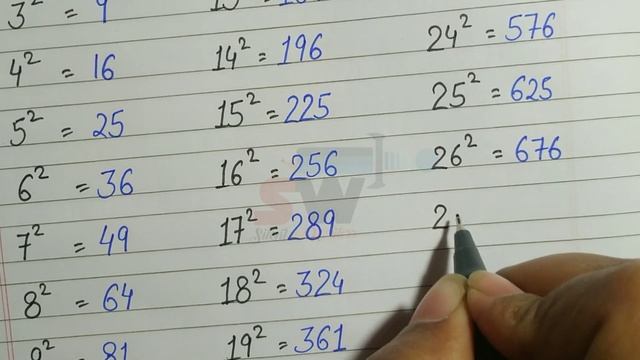 3² = 9
4² = 16
5² = 25
6² = 36
7² = 49
8² = 64
9² = 81
14² = 196
15² = 225
16² = 256
17² = 289
18² = 324
19² = 361
24² = 576
25² = 625
26² = 676
2
SW